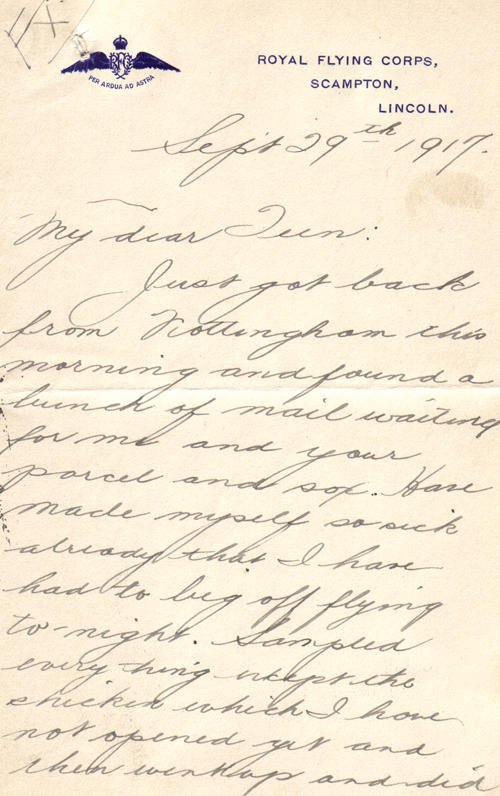 RFC
PER ARDUA AD ASTRA
ROYAL FLYING CORPS,
SCAMPTON,
LINCOLN.
Sept 29th 1917.
My dear Teen:
Just got back
from Nottingham this
morning and found a
bunch of mail waiting
for me and your
parcel and sox. Have
made myself so sick
already that I have
had to beg off flying
to-night. Sampled
every-thing except the
chicken which I have
not opened yet and
then went up and did